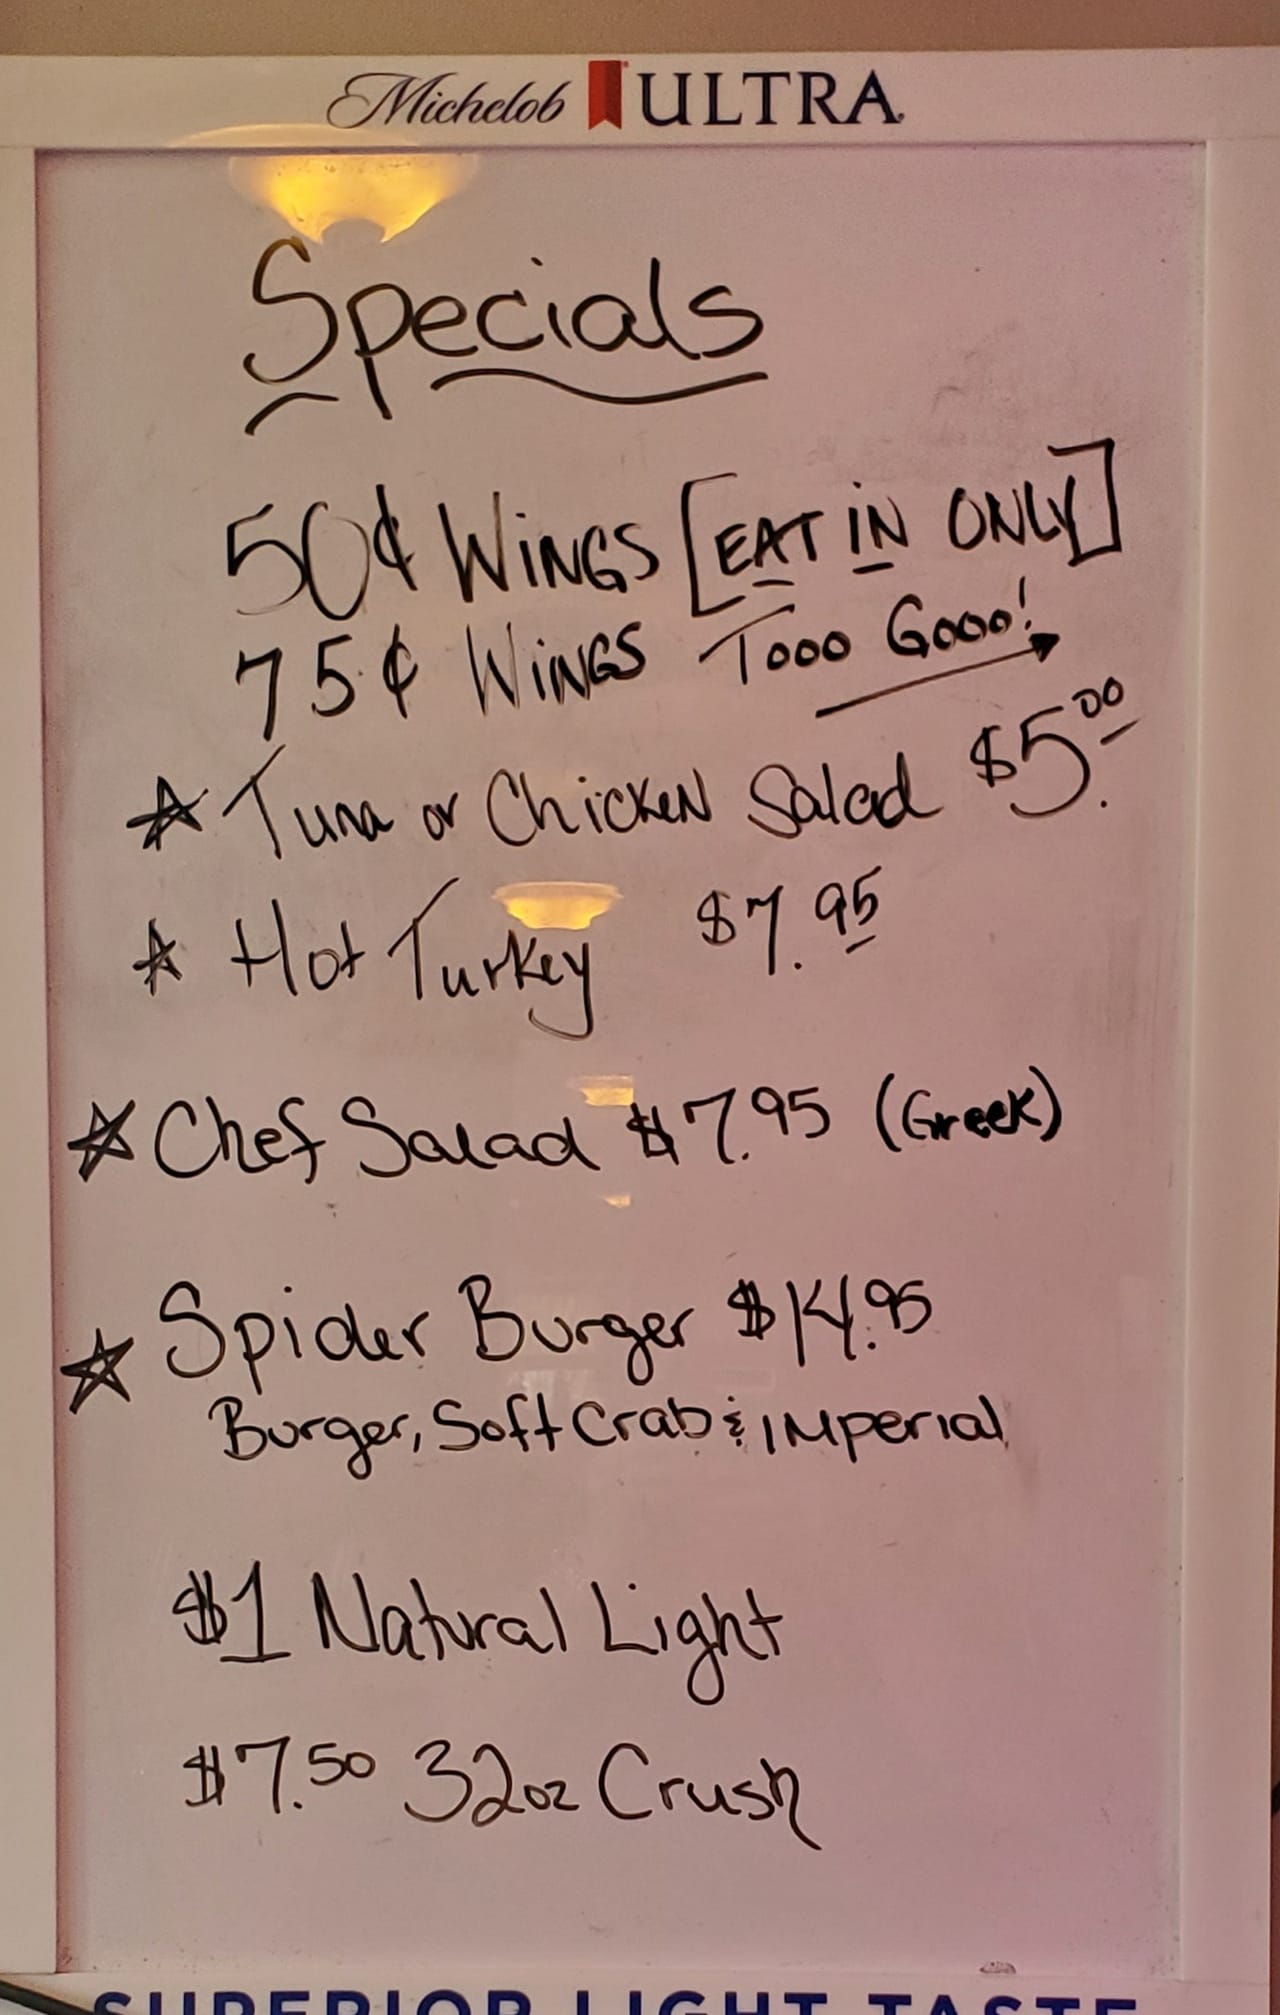 Michelob ULTRA
Specials
50¢ WINGS [EAT IN ONLY]
75¢ WINGS Tooo Gooo!
☆ Tuna or Chicken Salad $5.00
☆ Hot Turkey $7.95
☆ Chef Salad $7.95 (Greek)
☆ Spider Burger $14.95
Burger, Soft Crab & Imperial
$1 Natural Light
$7.50 32oz Crush
SUPERIOR LIGHT TASTE